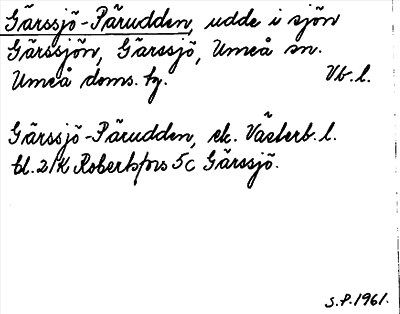 Gärssjö-Pärudden, udde i sjön
Gärssjön, Gärssjö, Umeå sn.
Umeå doms. hg. Vb. l.
Gärssjö-Pärudden, ek. Västerb. l.
bl. 21K Robertsfors 5c Gärssjö.
S.P. 1961.